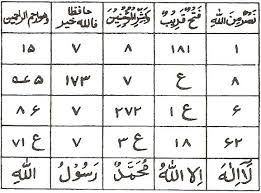 نَصْرٌ مِّنَ اللهِ فَتْحٌ قَرِيْبٌ وَبَشِّرِ الْمُؤْمِنِيْنَ حافظا فالله خير وهو ارحم الراحمين
۱ ۱۸۱ ۸ ۷ ۱۵
۸ ع ۷ ۱۷۳ ۵
۶ ع ۱ ۲۷۲ ۷ ۸ ۶
۶۲ ۱۸ ع ۳ ۷ ع ۷۱
لَاۤ اِلٰهَ اِلَّا اللهُ مُحَمَّدٌ رَسُوْلُ اللهِ